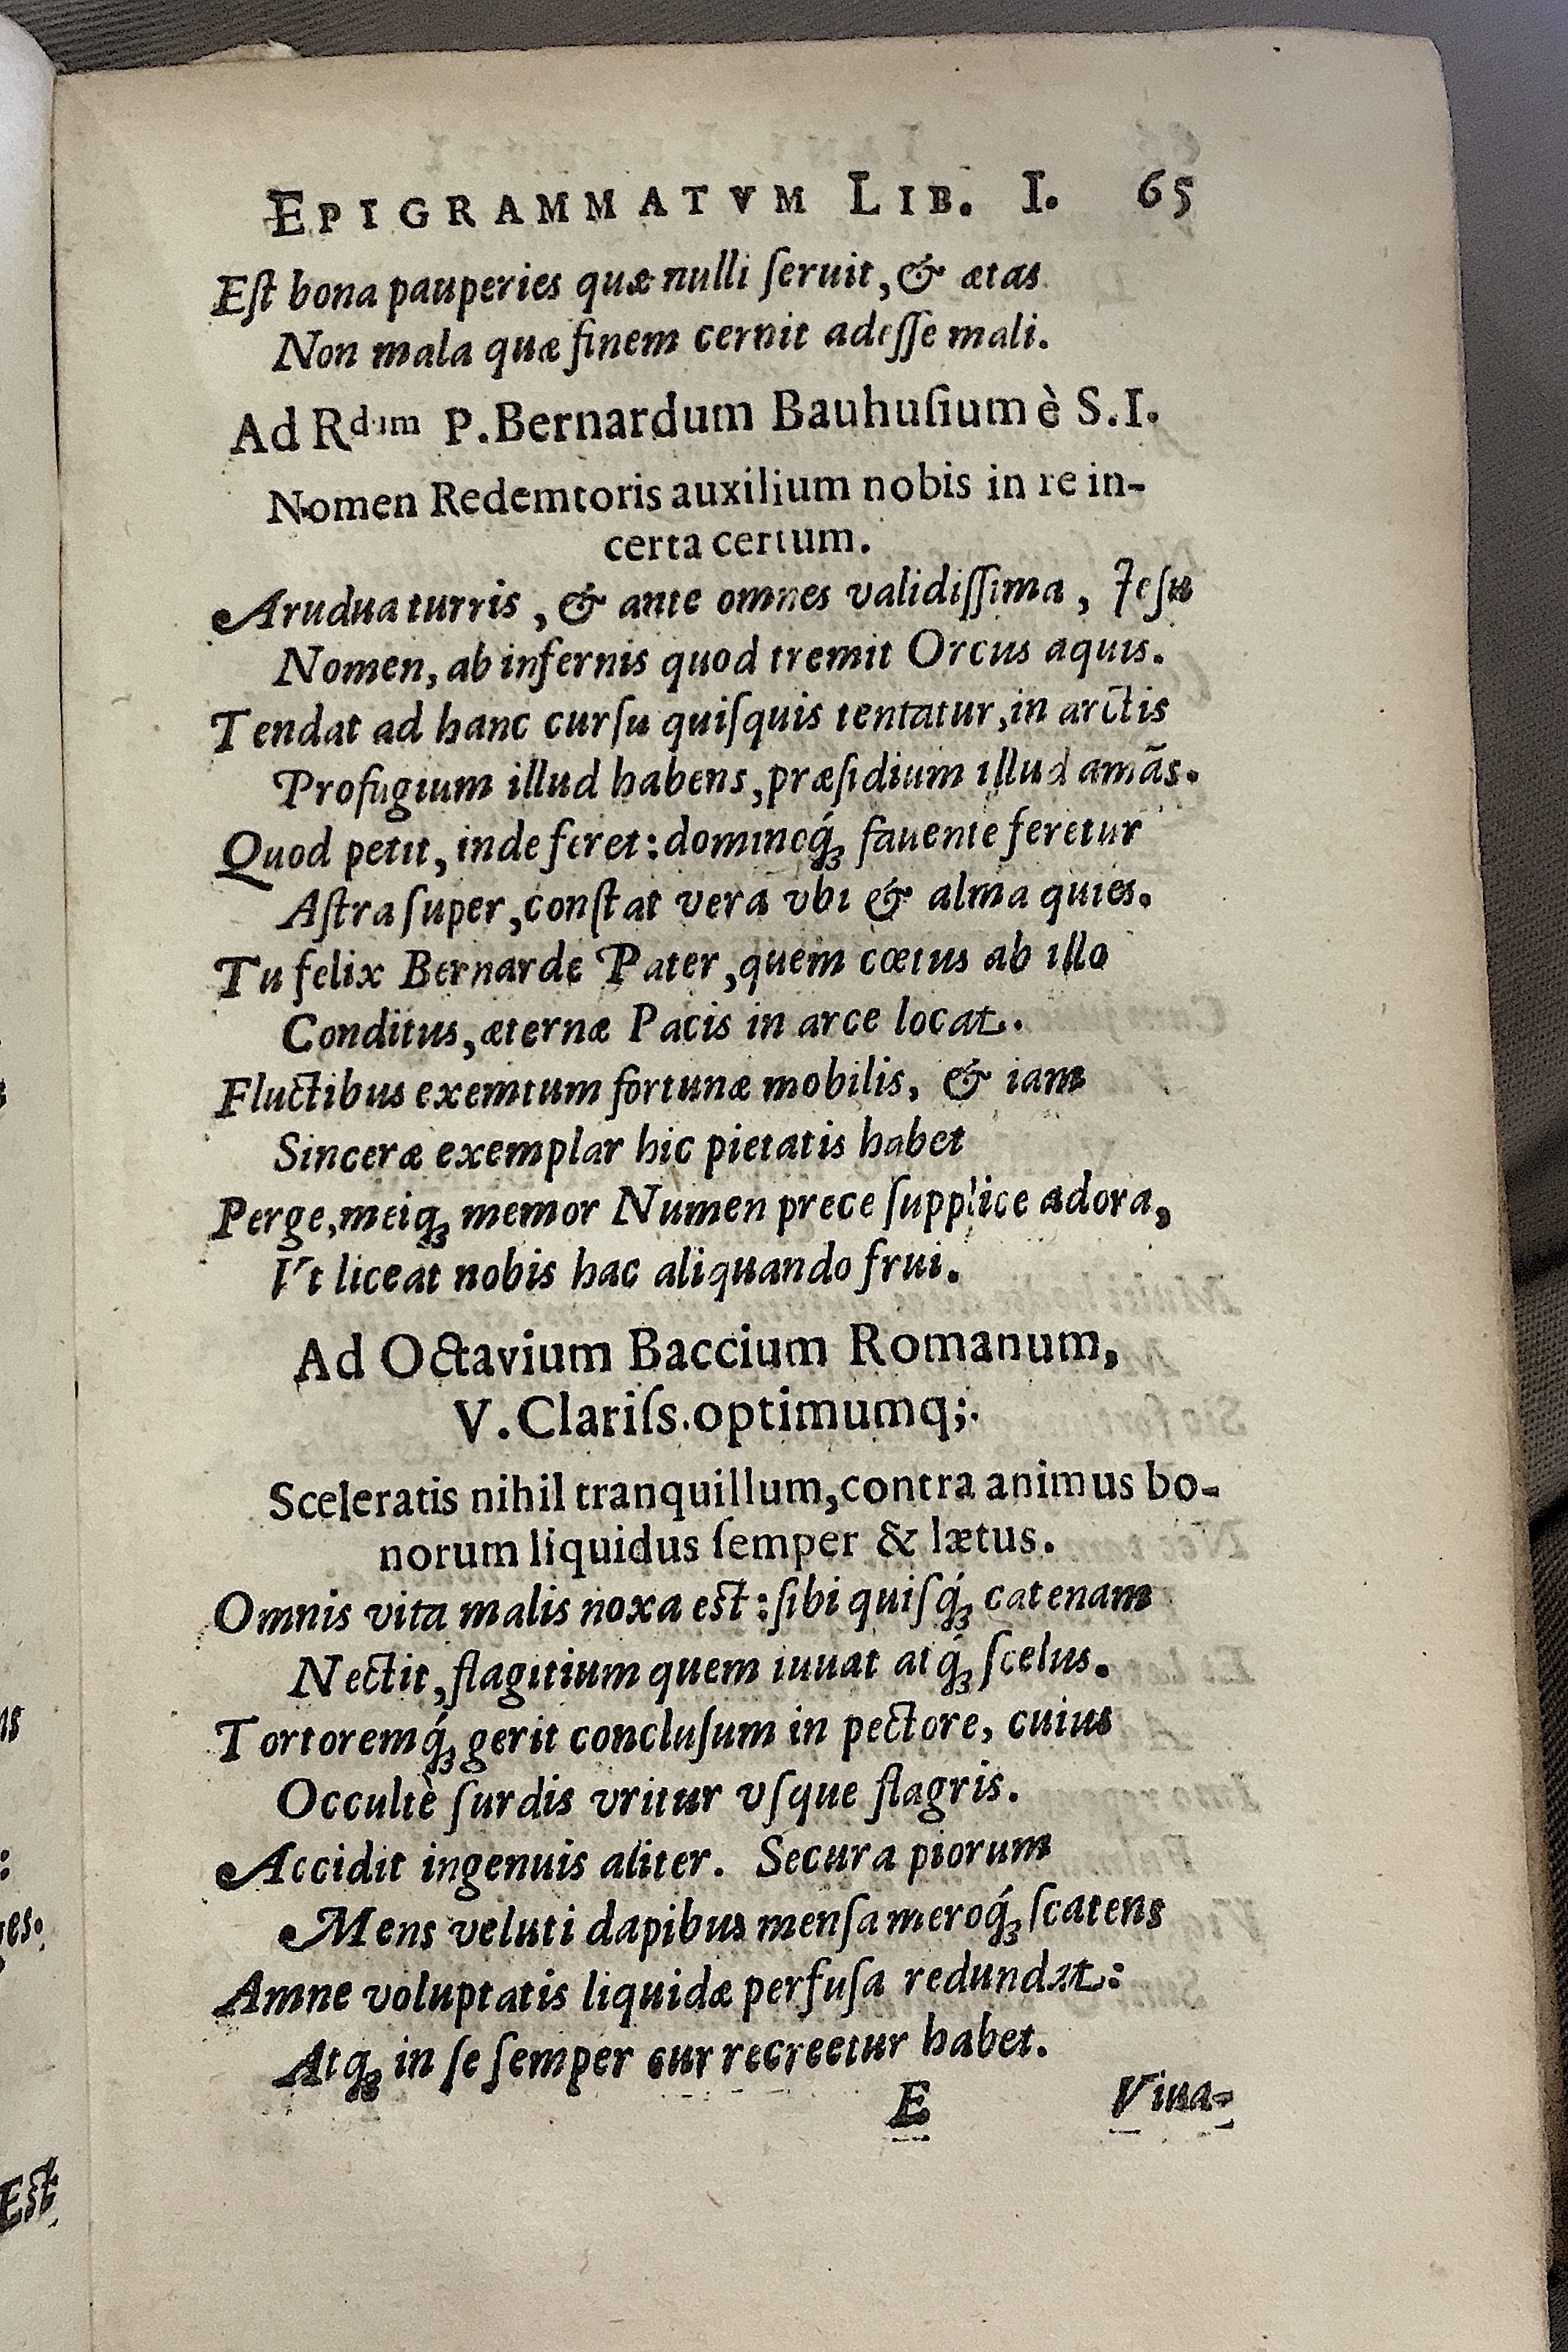 EPIGRAMMATVM LIB. I. 65
Eſt bona pauperies quæ nulli ſeruit, & ætas
Non mala quæ finem cernit adeſſe mali.
Ad Rdum P. Bernardum Bauhuſium è S. I.
Nomen Redemtoris auxilium nobis in re in-
certa certum.
Arudua turris, & ante omnes validiſſima, Jeſu
Nomen, ab infernis quod tremit Orcus aquis.
Tendat ad hanc curſu quiſquis tentatur, in arctis
Profugium illud habens, præſidium illud amãs.
Quod petit, inde feret: dominoq́ꝫ fauente feretur
Aſtra ſuper, conſtat vera vbi & alma quies.
Tu felix Bernarde Pater, quem cœtus ab illo
Conditus, æternæ Pacis in arce locat.
Fluctibus exemtum fortunæ mobilis, & iam
Sinceræ exemplar hic pietatis habet
Perge, meiqꝫ memor Numen prece ſupplice adora,
Vt liceat nobis hac aliquando frui.
Ad Octavium Baccium Romanum,
V. Clariſs. optimumq;.
Sceleratis nihil tranquillum, contra animus bo-
norum liquidus ſemper & lætus.
Omnis vita malis noxa est: ſibi quiſq́ꝫ catenam
Nectit, flagitium quem iuuat atq́ꝫ ſcelus.
Tortoremq́ꝫ gerit concluſum in pectore, cuius
Occultè ſurdis vritur vſque flagris.
Accidit ingenuis aliter. Secura piorum
Mens veluti dapibus menſa meroq́ꝫ ſcatens
Amne voluptatis liquidæ perfuſa redundat:
Atqꝫ in ſe ſemper cur recreetur habet.
E Viua-
Est